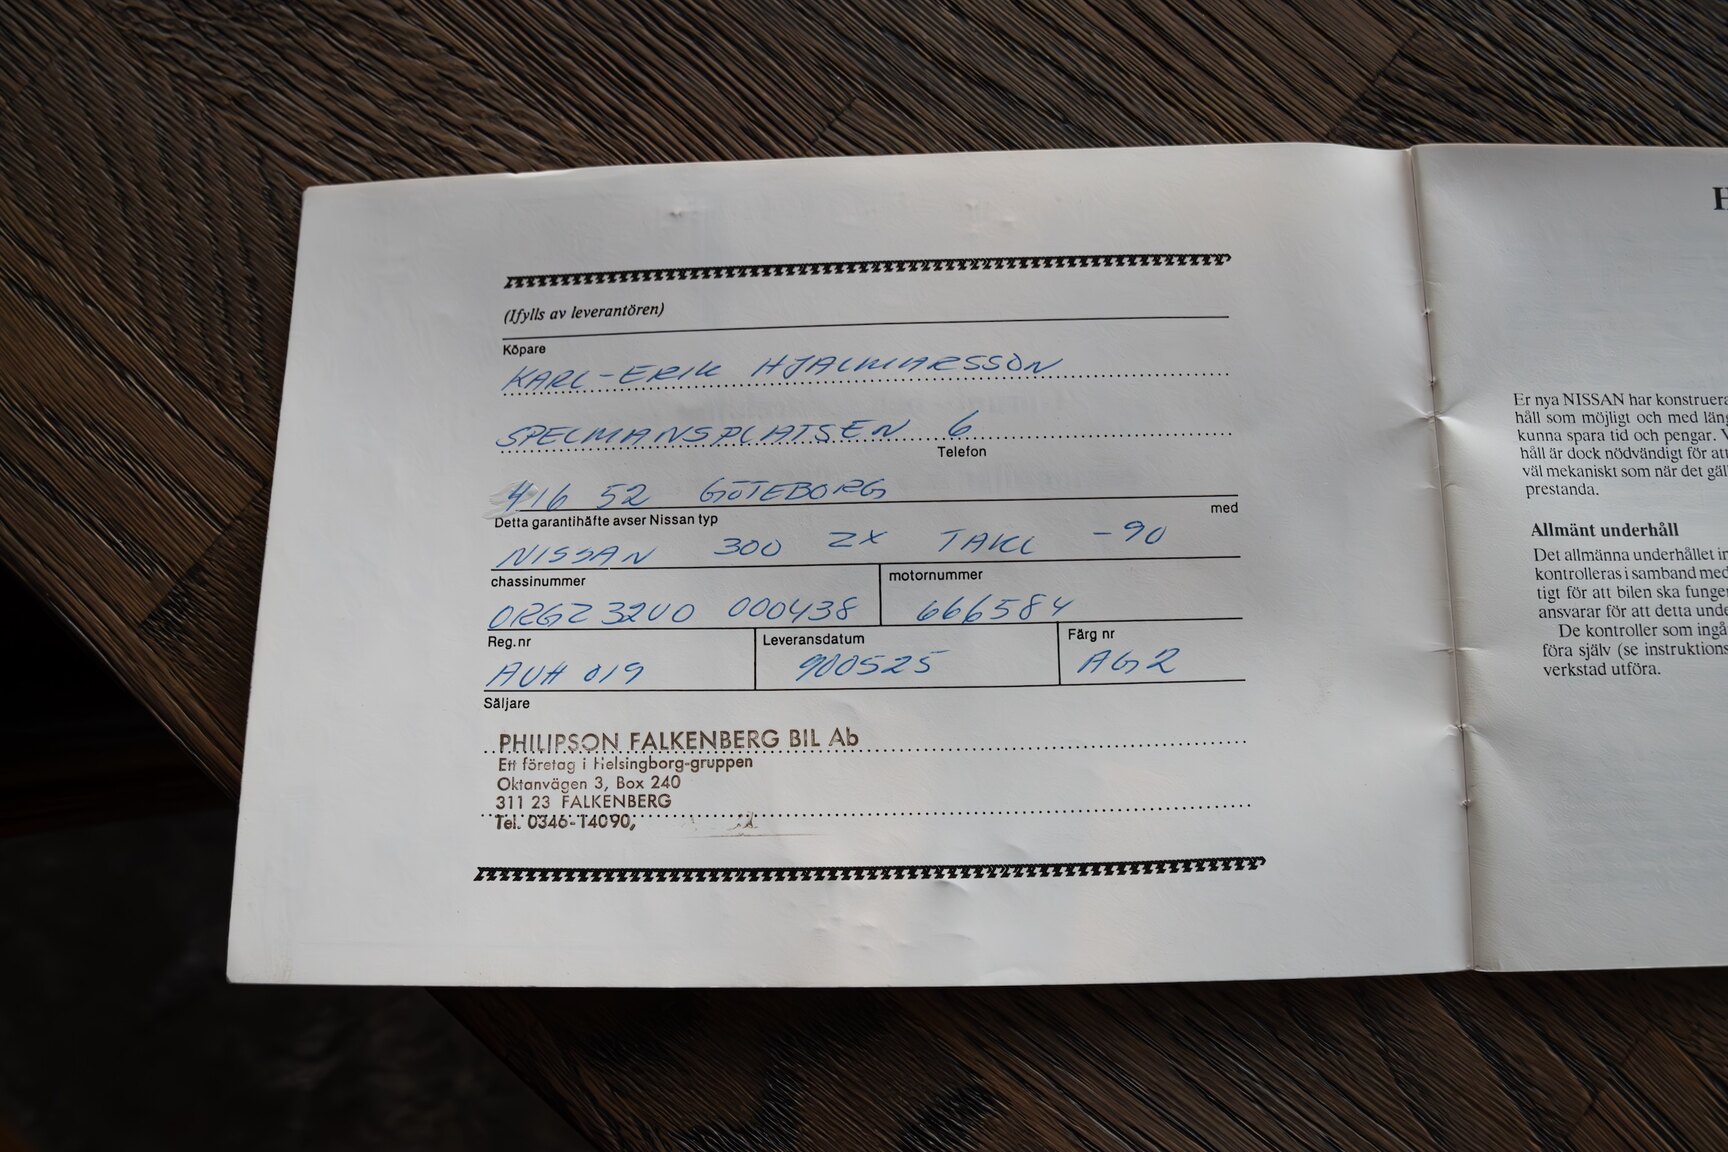 (Ifylls av leverantören)
Köpare
KARL-ERIK HJALMARSSON
SPELMANSPLATSEN 6
Telefon
416 52 GÖTEBORG
Detta garantihäfte avser Nissan typ med
NISSAN 300 ZX TAKL -90
chassinummer motornummer
0RGZ32U0 000438 666584
Reg.nr Leveransdatum Färg nr
AUH 019 900525 AG2
Säljare
PHILIPSON FALKENBERG BIL Ab
Ett företag i Helsingborg-gruppen
Oktanvägen 3, Box 240
311 23 FALKENBERG
Tel. 0346-14090,
H
Er nya NISSAN har konstruera
håll som möjligt och med läng
kunna spara tid och pengar. V
håll är dock nödvändigt för att
väl mekaniskt som när det gäl
prestanda.
Allmänt underhåll
Det allmänna underhållet in
kontrolleras i samband med
tigt för att bilen ska funger
ansvarar för att detta unde
De kontroller som ingå
föra själv (se instruktions
verkstad utföra.